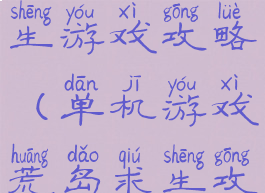 shēng yóu xì gōng lüè
生游戏攻略
dān jī yóu xì
（单机游戏
huāng dǎo qiú shēng gōng
荒岛求生攻